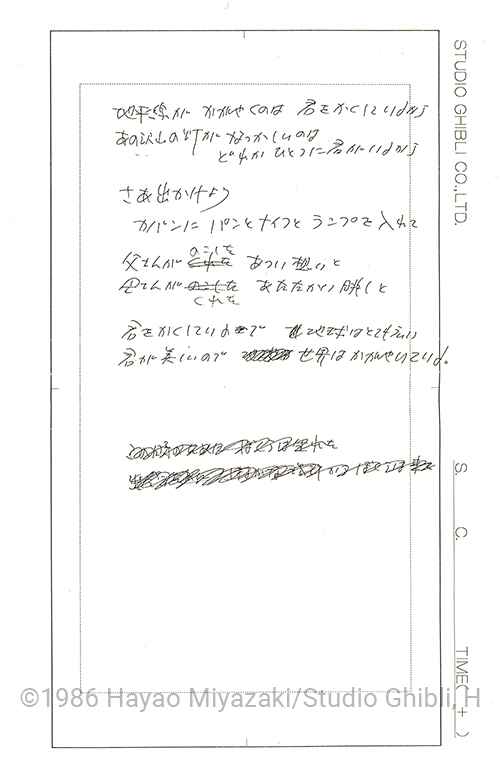 地平線が かがやくのは 君をかくしているから
あの沢山の灯が なつかしいのは
どれか ひとつに君がいるから
さあ出かけよう
カバンに パンとナイフと ランプを入れて
のこした
父さんが くれた あつい想いと
母さんが のこした あたたかい 眸しと
くれた
君をかくしている で 地球は
君が美しいので 世界は かがやいている。
STUDIO GHIBLI CO.,LTD.
S.
C.
TIME( + )
©1986 Hayao Miyazaki/Studio Ghibli, H